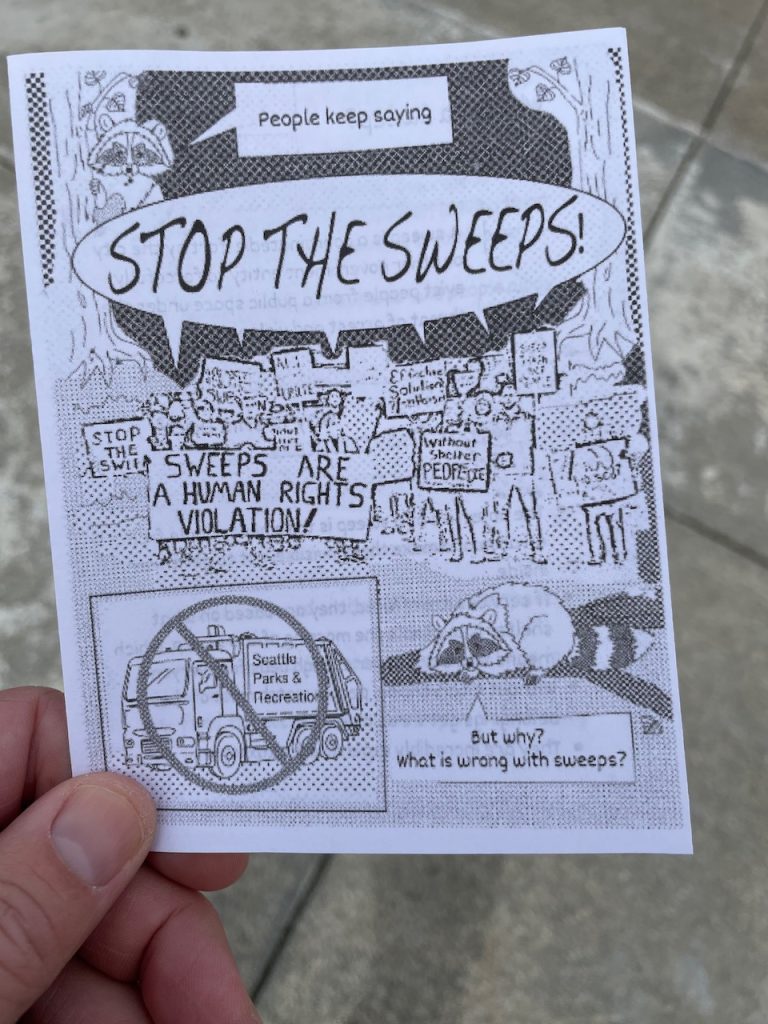 People keep saying
STOP THE SWEEPS!
STOP
THE
Efficient
Solution
Without
Shelter
PEOPLE DIE
SWEEPS ARE
A HUMAN RIGHTS
VIOLATION!
Seattle
Parks &
Recreation
But why?
What is wrong with sweeps?